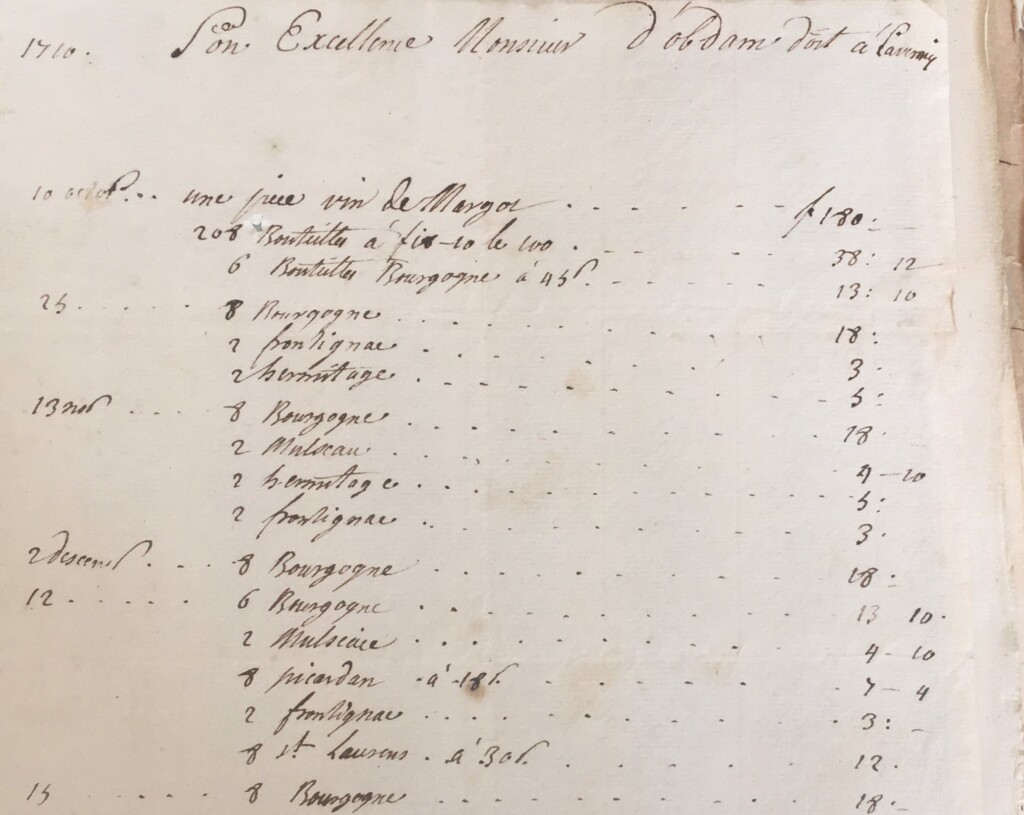 1710. Son Excellence Monsieur D'obdam doit à
10 octob. .. une piece vin de Margot . . . . . . f 180:
208 Bouteilles à f18-10 le 100 . . . . 38: 12
6 Bouteilles Bourgogne à 45s . . . . 13: 10
25 . . . . . 8 Bourgogne . . . . 18:
2 frontignac . . . . 3.
2 hermitage . . . . 5:
13 nob . . . . 8 Bourgogne . . . . 18.
2 Mulseau . . . . 4 - 10
2 hermitage . . . . 5:
2 frontignac . . . . 3.
2 descemb . . . 8 Bourgogne . . . . 18.
12 . . . . . 6 Bourgogne . . . . 13 10.
2 . . . . 4 - 10
8 picardan . à 18s . . . . 7 - 4
2 frontignac . . . . 3: -
8 st Laurens . à 30s . . . . 12.
15 . . . . . 8 Bourgogne . . . . 18. -